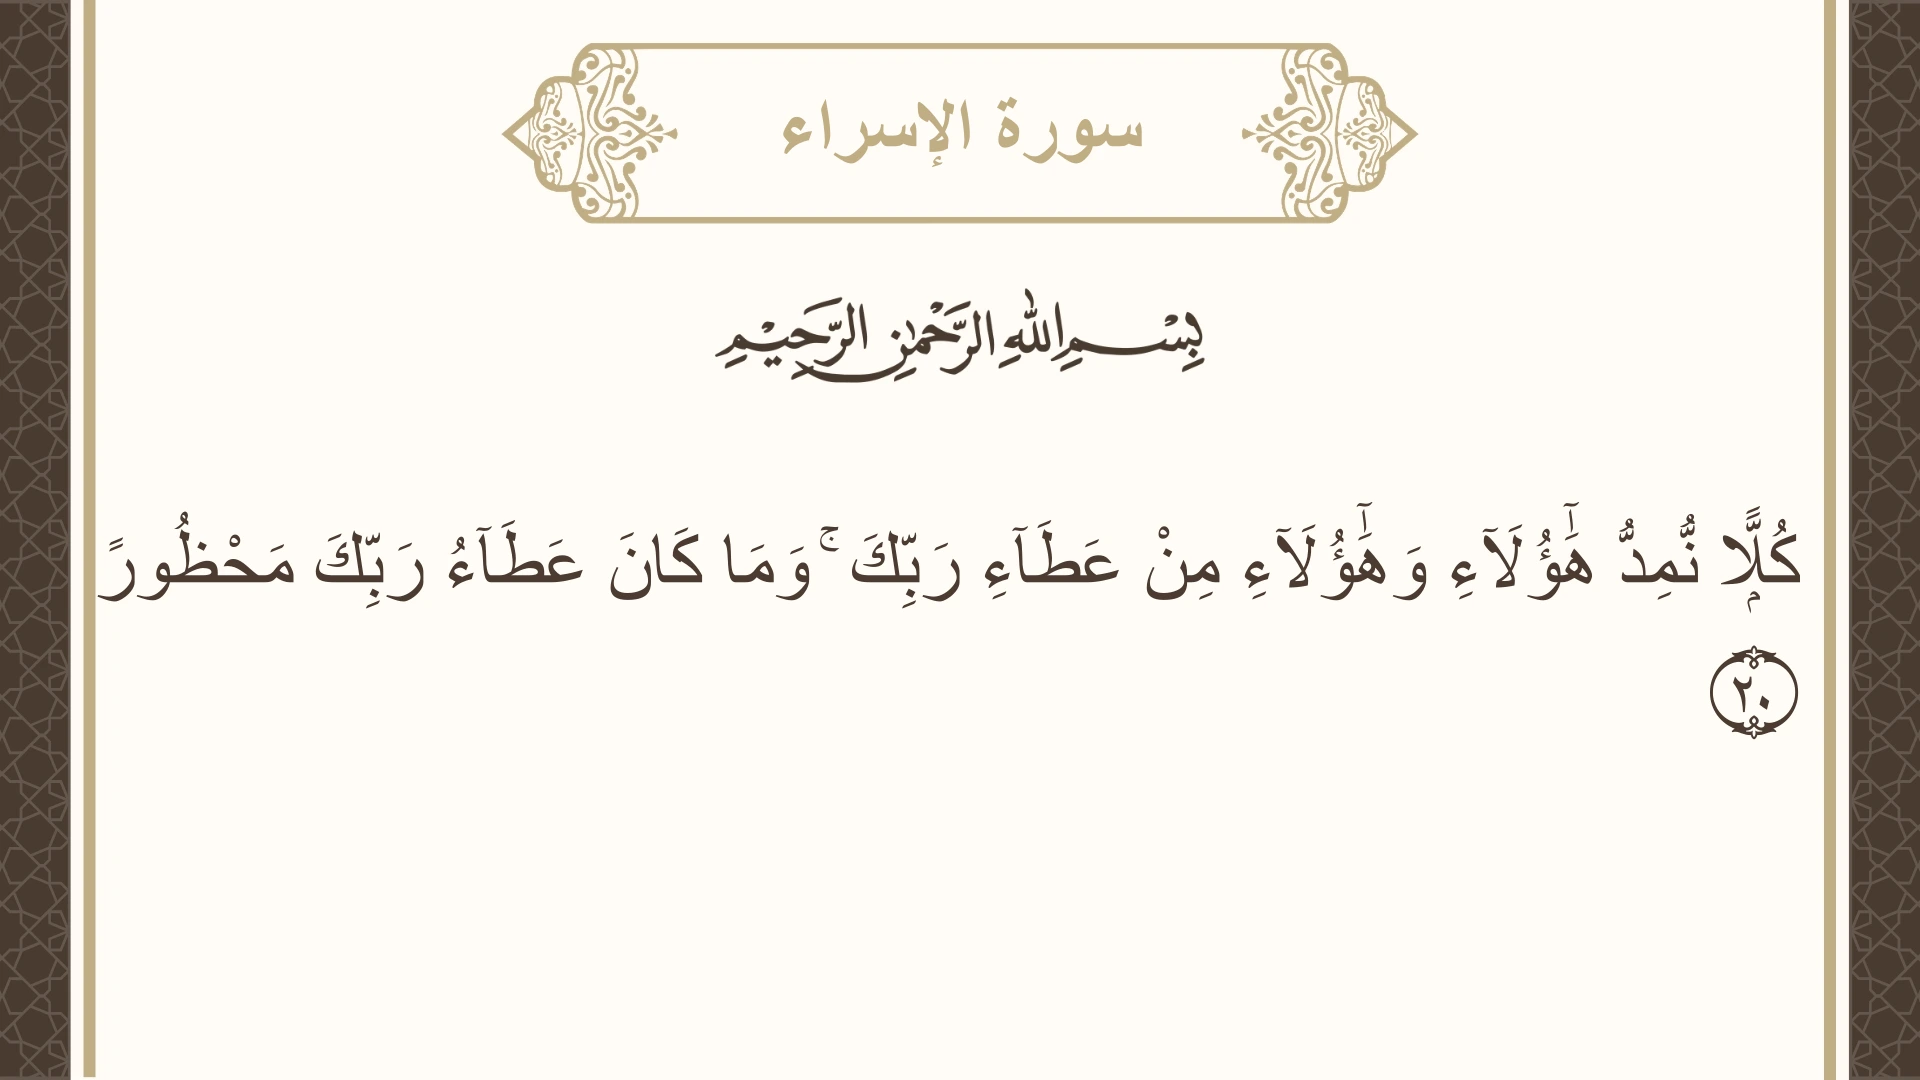 سورة الإسراء
بِسْمِ اللهِ الرَّحْمٰنِ الرَّحِيْمِ
كُلًّاۭ نُّمِدُّ هَٰٓؤُلَآءِ وَهَٰٓؤُلَآءِ مِنْ عَطَآءِ رَبِّكَ ۚ وَمَا كَانَ عَطَآءُ رَبِّكَ مَحْظُورً
٢٠